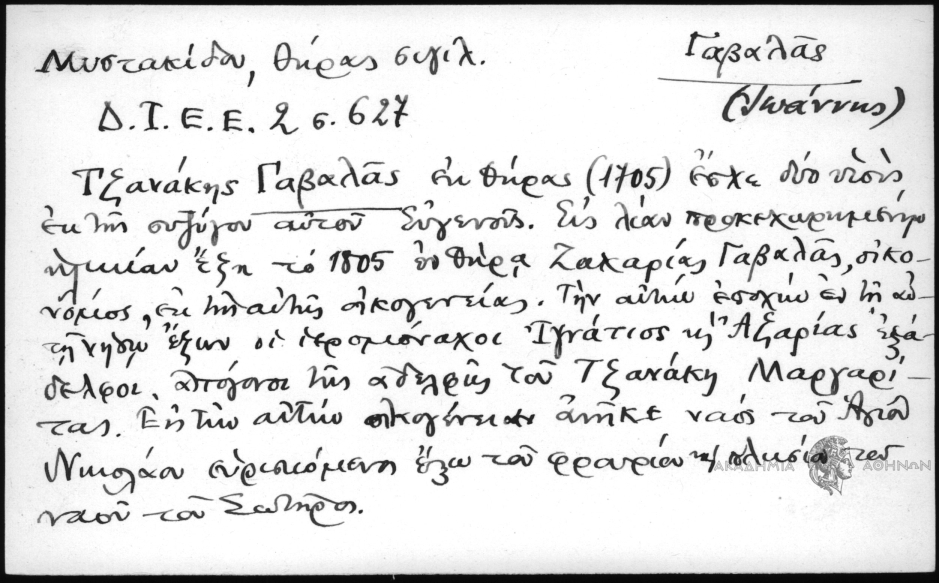 Μυστακίδου, Θήρας σιγιλ.
Γαβαλᾶς
(Ἰωάννης)
Δ.Ι.Ε.Ε. 2 σ. 627
Τζανάκης Γαβαλᾶς ἐκ Θήρας (1705) ἔσχε δύο υἱοὺς
ἐκ τῆς συζύγου αὐτοῦ Εὐγενοῦς. Εἰς λίαν προκεχωρημένην
ἡλικίαν ἔζη τὸ 1805 ἐν Θήρᾳ Ζαχαρίας Γαβαλᾶς, οἰκο-
νόμος, ἐκ τῆς αὐτῆς οἰκογενείας. Τὴν αὐτὴν ἐποχὴν ἐν τῇ αὐ-
τῇ νήσῳ ἔζων οἱ ἱερομόναχοι Ἰγνάτιος κ Ἀζαρίας ἐξά-
δελφοι, ἀπόγονοι τῆς ἀδελφῆς τοῦ Τζανάκη Μαργαρί-
τας. Εἰς τὴν αὐτὴν οἰκογένειαν ἀνῆκε ναὸς τοῦ Ἁγίου
Νικολάου εὑρισκόμενος ἔξω τοῦ φρουρίου κ πλησίον τοῦ
ναοῦ τοῦ Σωτῆρος.
ΑΚΑΔΗΜΙΑ ΑΘΗΝΩΝ